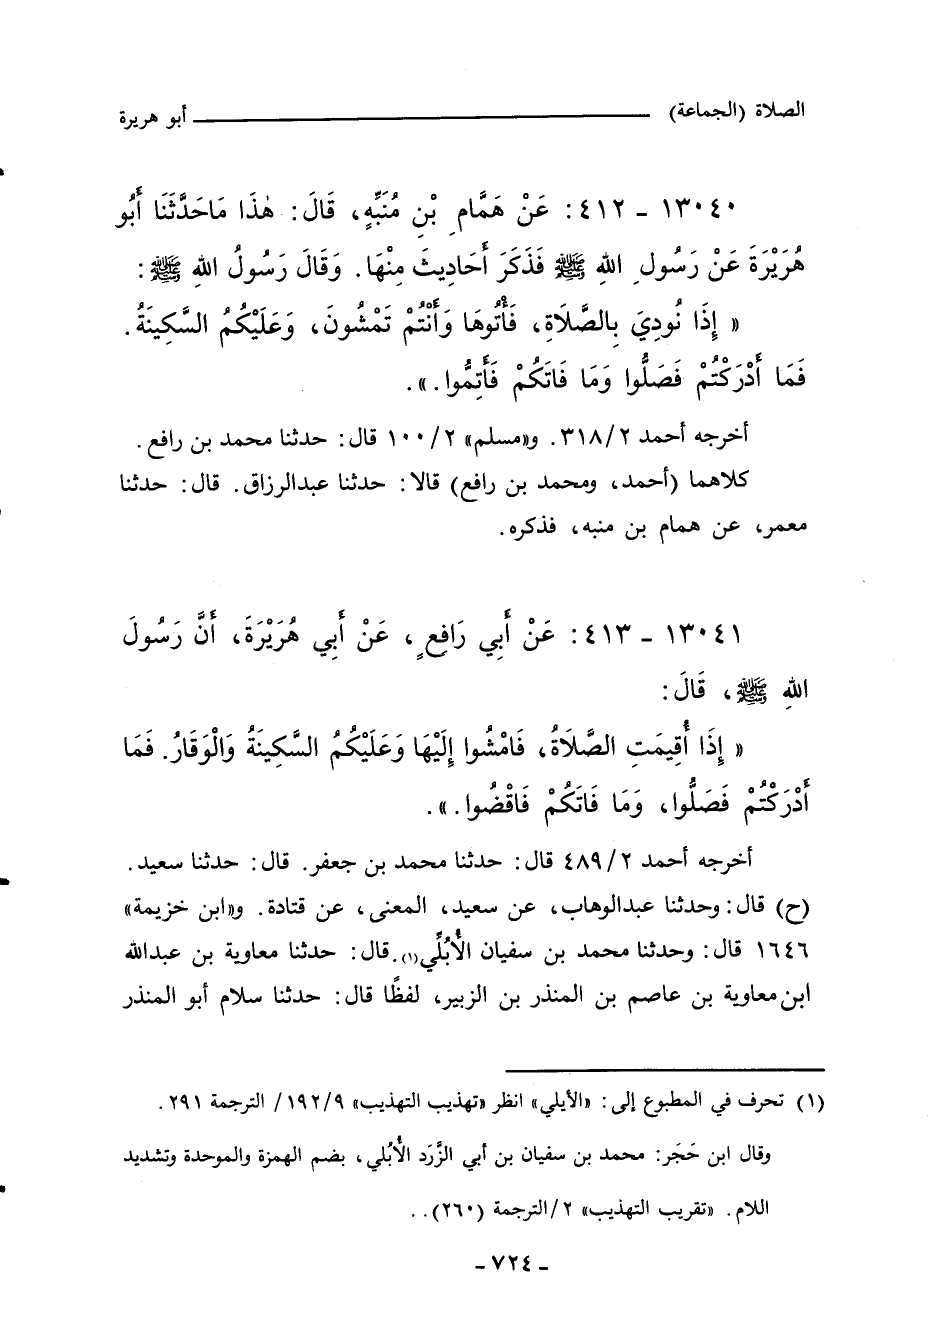 الصلاة (الجماعة) ــــــــــــــــ أبو هريرة
١٣٠٤٠ - ٤١٢: عَنْ هَمَّامِ بْنِ مُنَبِّهٍ، قَالَ: هٰذَا مَاحَدَّثَنَا أَبُو
هُرَيْرَةَ عَنْ رَسُولِ اللهِ ﷺ فَذَكَرَ أَحَادِيثَ مِنْهَا. وَقَالَ رَسُولُ اللهِ ﷺ:
« إِذَا نُودِيَ بِالصَّلَاةِ، فَأْتُوهَا وَأَنْتُمْ تَمْشُونَ، وَعَلَيْكُمُ السَّكِينَةُ.
فَمَا أَدْرَكْتُمْ فَصَلُّوا وَمَا فَاتَكُمْ فَأَتِمُّوا.».
أخرجه أحمد ٣١٨/٢. و«مسلم» ١٠٠/٢ قال: حدثنا محمد بن رافع.
كلاهما (أحمد، ومحمد بن رافع) قالا: حدثنا عبدالرزاق. قال: حدثنا
معمر، عن همام بن منبه، فذكره.
١٣٠٤١ - ٤١٣: عَنْ أَبِي رَافِعٍ، عَنْ أَبِي هُرَيْرَةَ، أَنَّ رَسُولَ
اللهِ ﷺ، قَالَ:
« إِذَا أُقِيمَتِ الصَّلَاةُ، فَامْشُوا إِلَيْهَا وَعَلَيْكُمُ السَّكِينَةُ وَالْوَقَارُ. فَمَا
أَدْرَكْتُمْ فَصَلُّوا، وَمَا فَاتَكُمْ فَاقْضُوا.».
أخرجه أحمد ٤٨٩/٢ قال: حدثنا محمد بن جعفر. قال: حدثنا سعيد.
(ح) قال: وحدثنا عبدالوهاب، عن سعيد، المعنى، عن قتادة. و«ابن خزيمة»
١٦٤٦ قال: وحدثنا محمد بن سفيان الأُبُلِّي(١). قال: حدثنا معاوية بن عبدالله
ابن معاوية بن عاصم بن المنذر بن الزبير، لفظًا قال: حدثنا سلام أبو المنذر
(١) تحرف في المطبوع إلى: «الأيلي» انظر «تهذيب التهذيب» ١٩٢/٩/ الترجمة ٢٩١.
وقال ابن حَجَر: محمد بن سفيان بن أبي الزَّرَد الأُبُلي، بضم الهمزة والموحدة وتشديد
اللام. «تقريب التهذيب» ٢/الترجمة (٢٦٠)..
- ٧٢٤ -